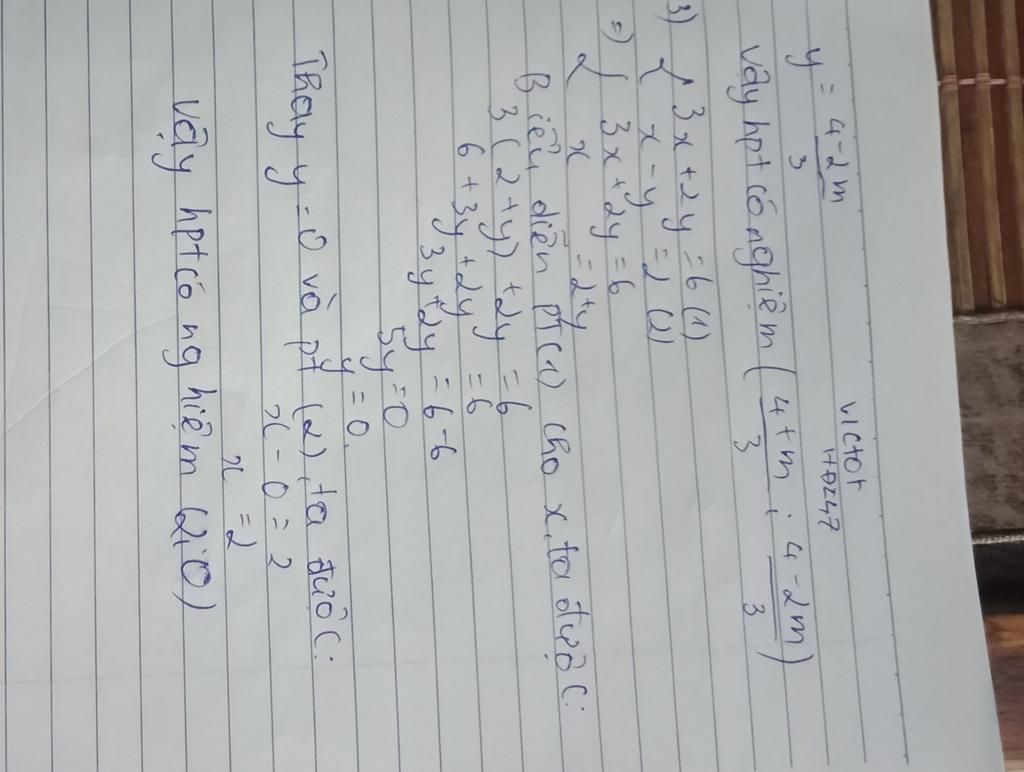 victor
y = 4-2m/3
Vậy hpt có nghiệm (4+m/3 ; 4-2m/3)
3) { 3x + 2y = 6 (1)
{ x - y = 2 (2)
=) { 3x + 2y = 6
{ x = 2+y
Biểu diễn pt (1) cho x, ta được:
3(2+y) + 2y = 6
6 + 3y + 2y = 6
3y + 2y = 6-6
5y = 0
y = 0
Thay y = 0 và pt (2), ta được:
x - 0 = 2
x = 2
Vậy hpt có nghiệm (2;0)